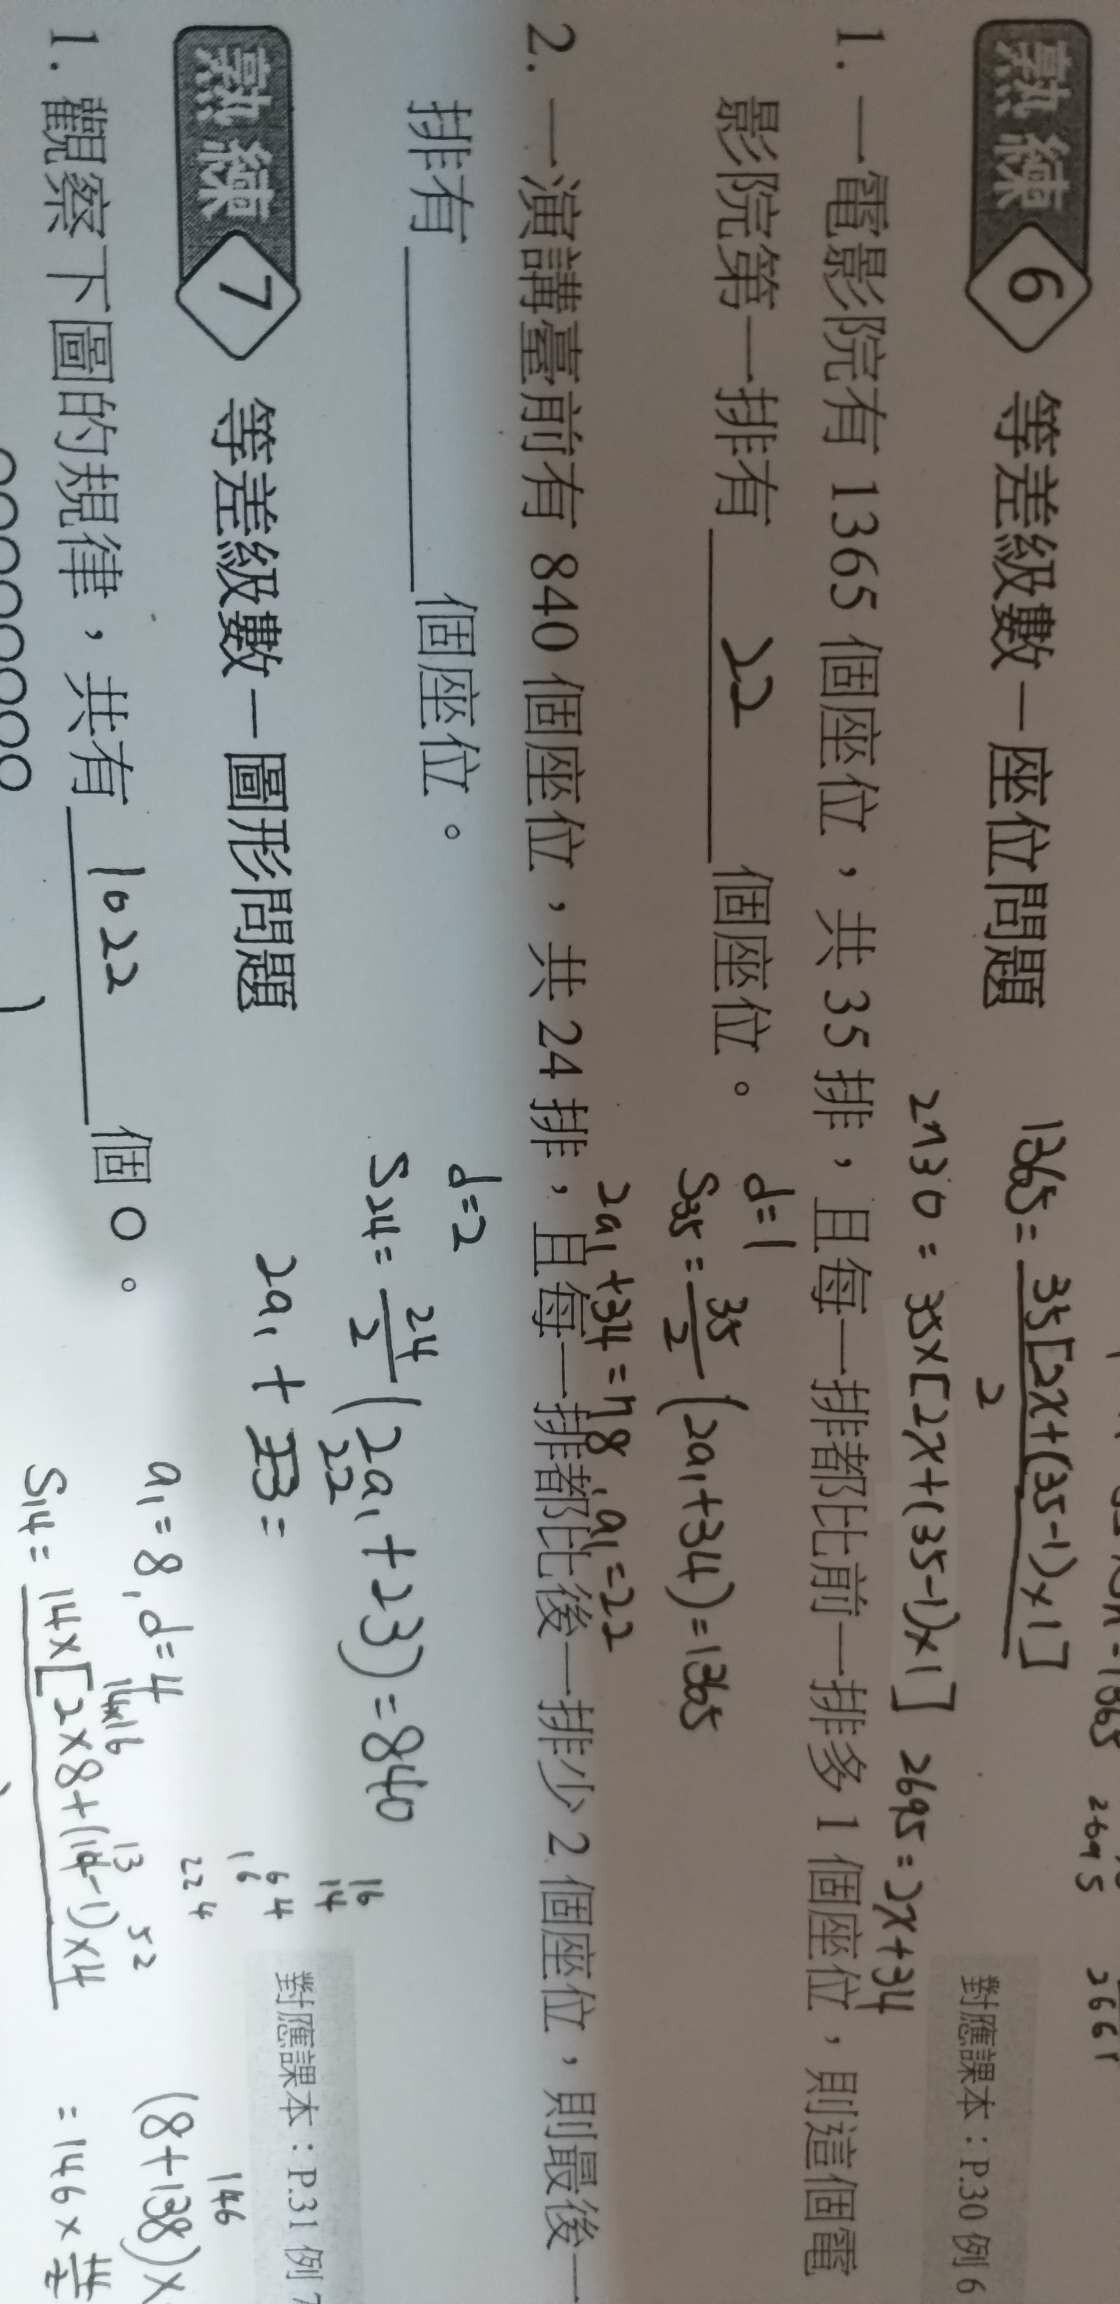 熟練 6 等差級數－座位問題
對應課本：P.30 例 6
1365 = 35[2x+(35-1)×1]
2
2730 = 35×[2x+(35-1)×1]
2695 = 2x+34
2695
1. 一電影院有 1365 個座位，共 35 排，且每一排都比前一排多 1 個座位，則這個電
影院第一排有 22 個座位。
d=1
S35 = 35/2 (2a1+34) = 1365
2a1+34=78, a1=22
2. 一演講臺前有 840 個座位，共 24 排，且每一排都比後一排少 2 個座位，則最後一
排有 個座位。
d=2
S24 = 24/2 (2a1+23) = 840
22
2a1 + 3 =
熟練 7 等差級數－圖形問題
對應課本：P.31 例 7
16
14
64
16
224
1. 觀察下圖的規律，共有 1022 個○。
a1=8, d=4
14×16
13
52
S14 = 14×[2×8+(14-1)×4
146
(8+138)×
= 146 × 14/2